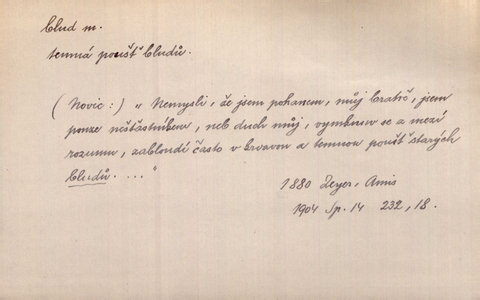 blud m.
temná poušť bludů.
(Novic:) „Nemysli, že jsem pohanem, můj bratře, jsem
pouze nešťastníkem, neb duch můj, vymknuv se a mezí
rozumu, zabloudí často v krvavou a temnou poušť starých
bludů. ..."
1880 Zeyer, Amis
1904 Sp. 14 232, 18.